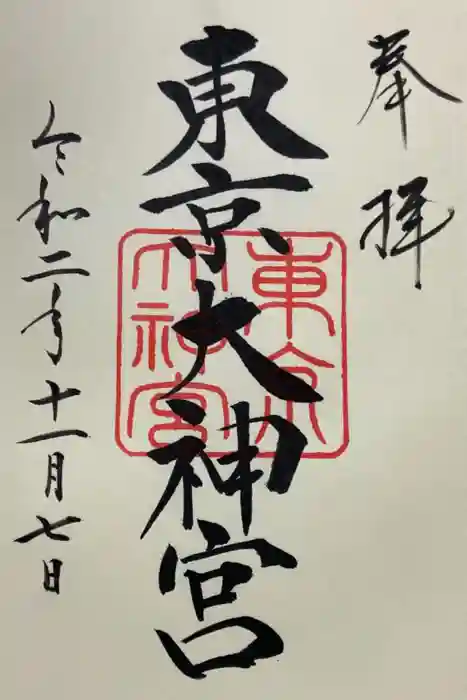 奉拝
東京大神宮
東京
大神宮
令和二年十一月七日